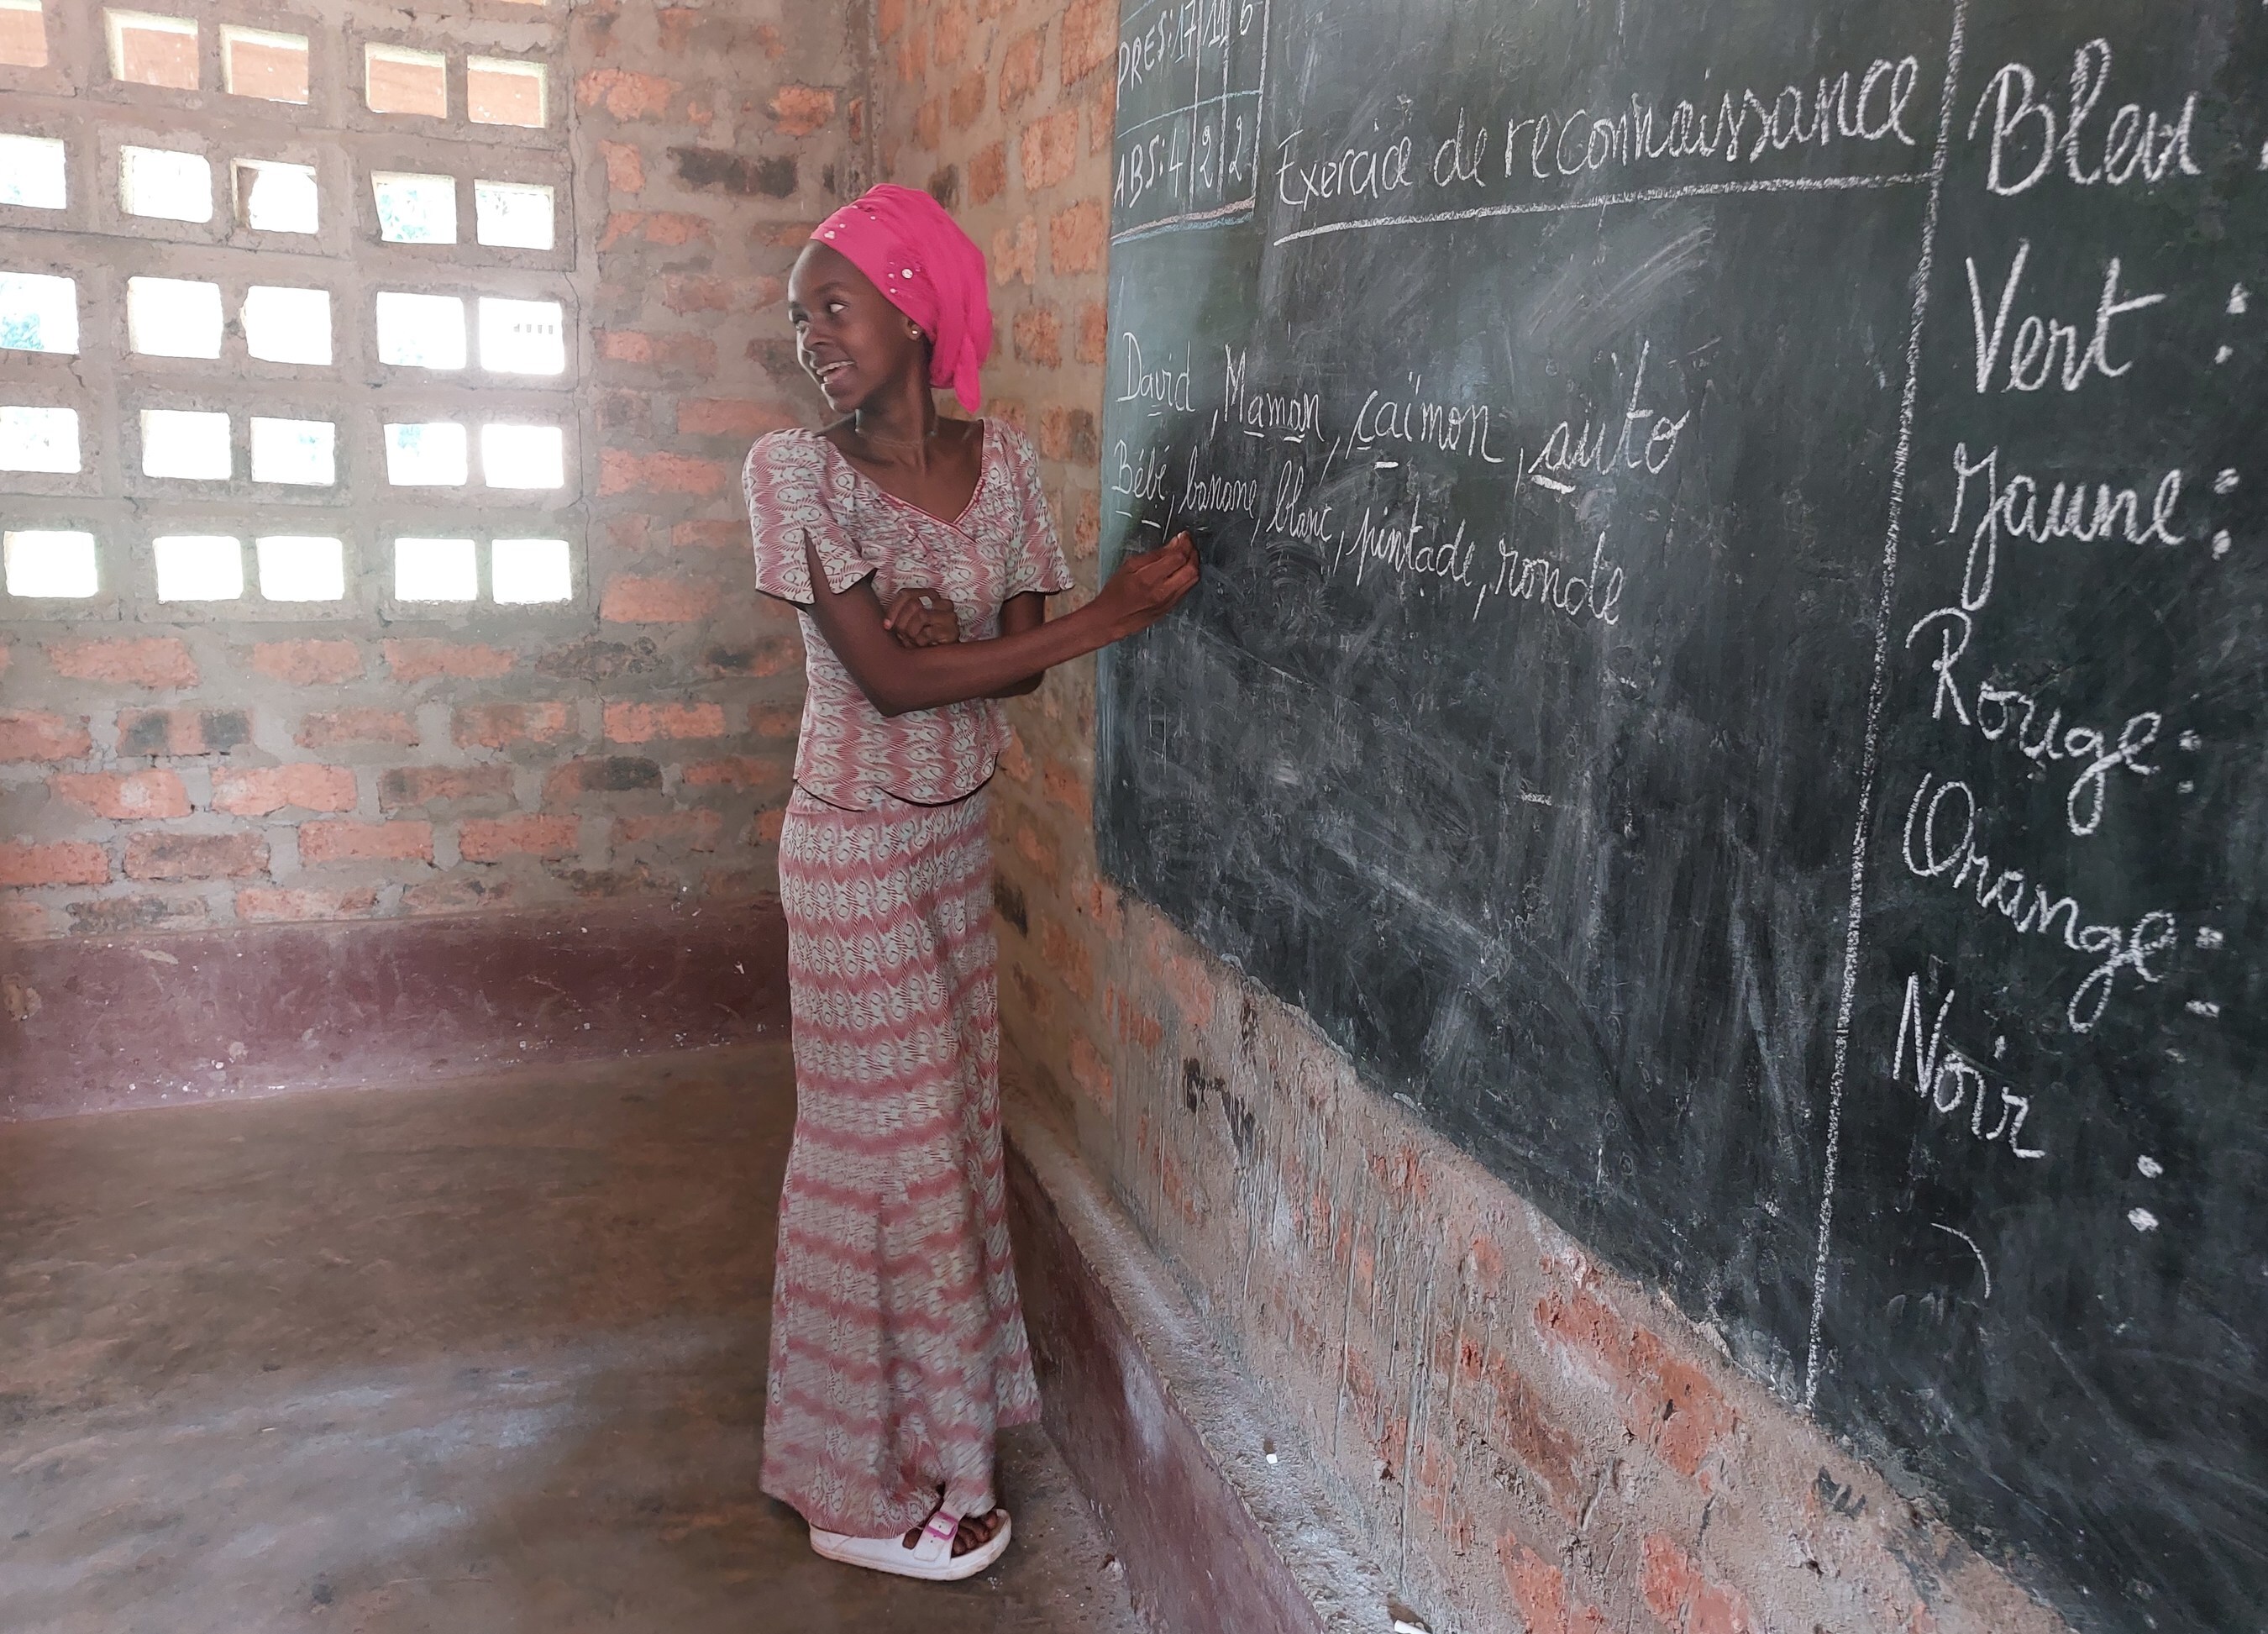 PRES: 17 11 6
ABS: 4 2 2
Exercice de reconnaissance
David, Maman, caïmon, auto
Bébé, banane, blanc, pintade, ronde
Bleu
Vert :
Jaune :
Rouge :
Orange :
Noir :